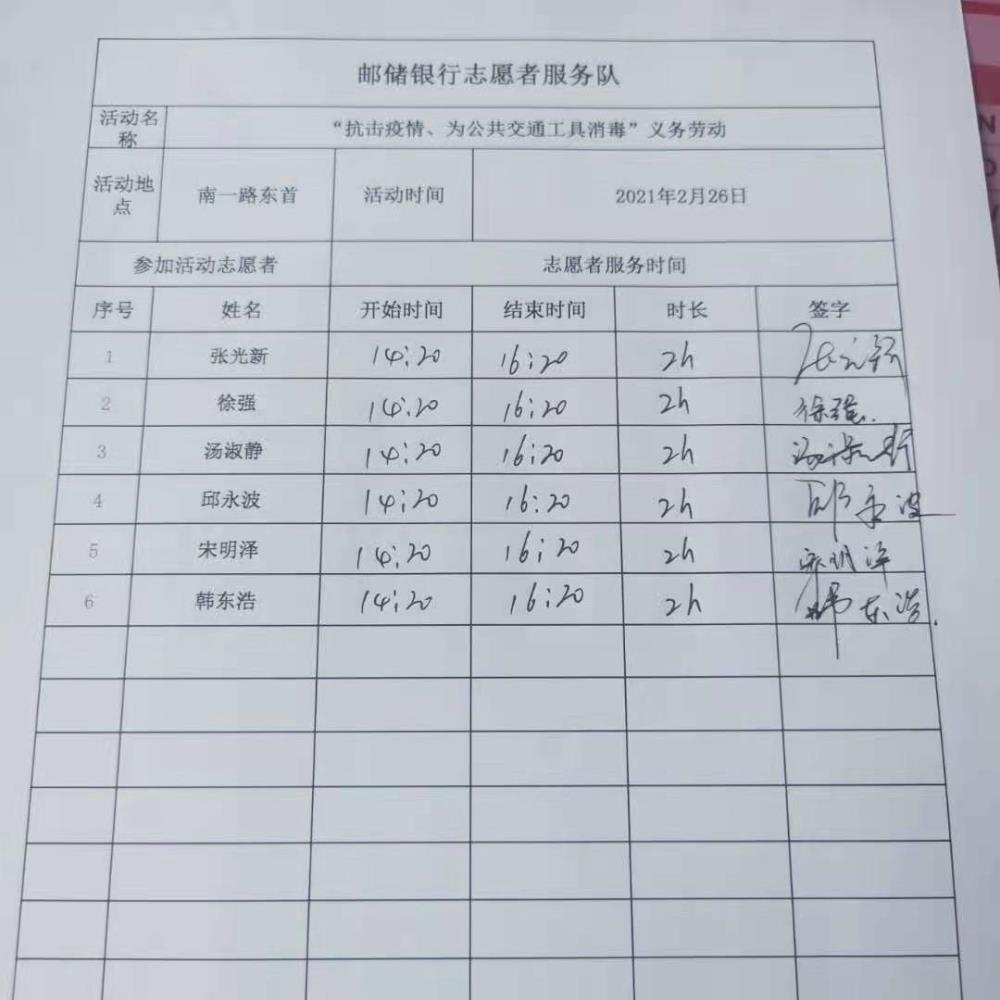 邮储银行志愿者服务队
活动名称 “抗击疫情、为公共交通工具消毒”义务劳动
活动地点 南一路东首 活动时间 2021年2月26日
参加活动志愿者 志愿者服务时间
序号 姓名 开始时间 结束时间 时长 签字
1 张光新 14:20 16:20 2h
2 徐强 14:20 16:20 2h 徐强.
3 汤淑静 14:20 16:20 2h
4 邱永波 14:20 16:20 2h 邱永波
5 宋明泽 14:20 16:20 2h 宋明泽
6 韩东浩 14:20 16:20 2h 韩东浩.